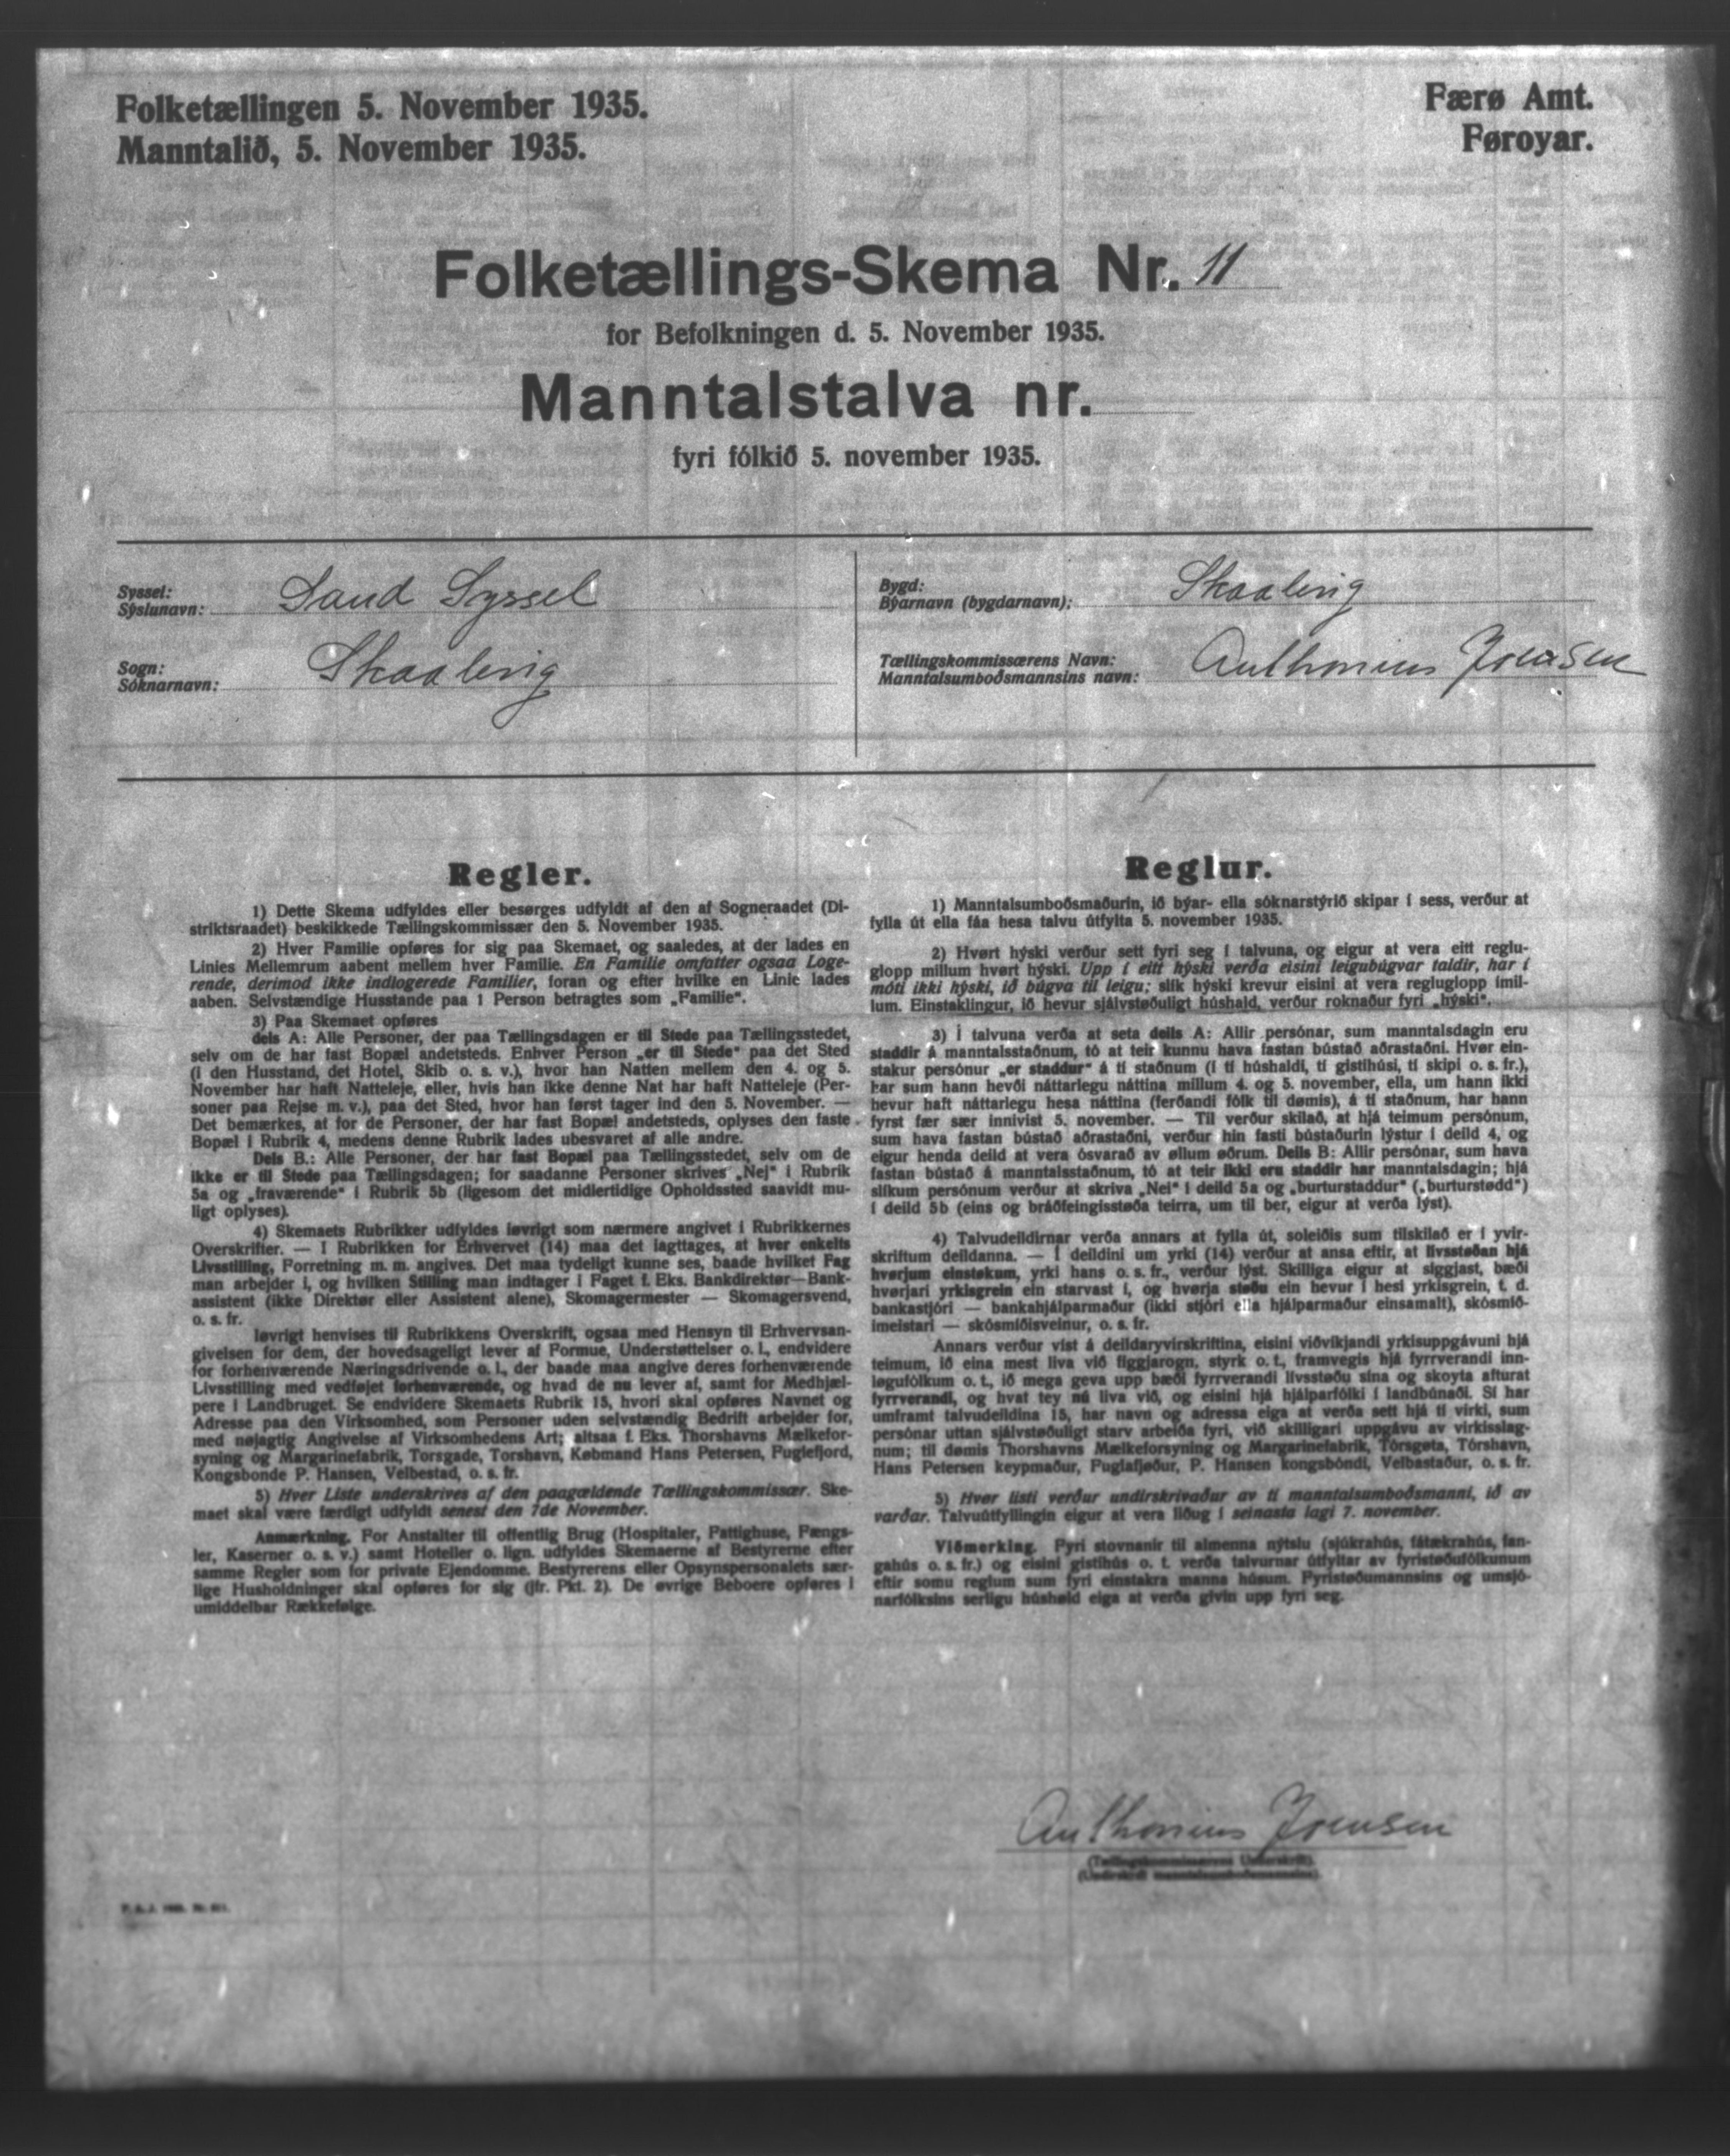 Folketællingen 5. November 1935.
Manntalið, 5. November 1935.
Færø Amt.
Føroyar.
Folketællings-Skema Nr. 11
for Befolkningen d. 5. November 1935.
Manntalstalva nr.
fyri fólkið 5. november 1935.
Syssel:
Sýslunavn: Sand Syssel
Sogn:
Sóknarnavn: Skaalevig
Bygd:
Býarnavn (bygdarnavn): Skaalevig
Tællingskommissærens Navn:
Manntalsumboðsmannsins navn: Anthonius Joensen
Regler.
1) Dette Skema udfyldes eller besørges udfyldt af den af Sogneraadet (Di-
striktsraadet) beskikkede Tællingskommissær den 5. November 1935.
2) Hver Familie opføres for sig paa Skemaet, og saaledes, at der lades en
Linies Mellemrum aabent mellem hver Familie. En Familie omfatter ogsaa Loge-
rende, derimod ikke indlogerede Familier, foran og efter hvilke en Linie lades
aaben. Selvstændige Husstande paa 1 Person betragtes som „Familie“.
3) Paa Skemaet opføres
dels A: Alle Personer, der paa Tællingsdagen er til Stede paa Tællingsstedet,
selv om de har fast Bopæl andetsteds. Enhver Person „er til Stede“ paa det Sted
(i den Husstand, det Hotel, Skib o. s. v.), hvor han Natten mellem den 4. og 5.
November har haft Natteleje, eller, hvis han ikke denne Nat har haft Natteleje (Per-
soner paa Rejse m. v.), paa det Sted, hvor han først tager ind den 5. November. —
Det bemærkes, at for de Personer, der har fast Bopæl andetsteds, oplyses den faste
Bopæl i Rubrik 4, medens denne Rubrik lades ubesvaret af alle andre.
Dels B.: Alle Personer, der har fast Bopæl paa Tællingsstedet, selv om de
ikke er til Stede paa Tællingsdagen; for saadanne Personer skrives „Nej“ i Rubrik
5a og „fraværende“ i Rubrik 5b (ligesom det midlertidige Opholdssted saavidt mu-
ligt oplyses).
4) Skemaets Rubrikker udfyldes iøvrigt som nærmere angivet i Rubrikkernes
Overskrifter. — I Rubrikken for Erhvervet (14) maa det iagttages, at hver enkelts
Livsstilling, Forretning m. m. angives. Det maa tydeligt kunne ses, baade hvilket Fag
man arbejder i, og hvilken Stilling man indtager i Faget f. Eks. Bankdirektør—Bank-
assistent (ikke Direktør eller Assistent alene), Skomagermester — Skomagersvend,
o. s. fr.
Iøvrigt henvises til Rubrikkens Overskrift, ogsaa med Hensyn til Erhvervsan-
givelsen for dem, der hovedsageligt lever af Formue, Understøttelser o. l., endvidere
for forhenværende Næringsdrivende o. l., der baade maa angive deres forhenværende
Livsstilling med vedføjet forhenværende, og hvad de nu lever af, samt for Medhjæl-
pere i Landbruget. Se endvidere Skemaets Rubrik 15, hvori skal opføres Navnet og
Adresse paa den Virksomhed, som Personer uden selvstændig Bedrift arbejder for,
med nøjagtig Angivelse af Virksomhedens Art; altsaa f. Eks. Thorshavns Mælkefor-
syning og Margarinefabrik, Torsgade, Torshavn, Købmand Hans Petersen, Fuglefjord,
Kongsbonde P. Hansen, Velbestad, o. s. fr.
5) Hver Liste underskrives af den paagældende Tællingskommissær. Ske-
maet skal være færdigt udfyldt senest den 7de November.
Anmærkning. For Anstalter til offentlig Brug (Hospitaler, Fattighuse, Fængs-
ler, Kaserner o. s. v.) samt Hoteller o. lign. udfyldes Skemaerne af Bestyrerne efter
samme Regler som for private Ejendomme. Bestyrerens eller Opsynspersonalets sær-
lige Husholdninger skal opføres for sig (jfr. Pkt. 2). De øvrige Beboere opføres i
umiddelbar Rækkefølge.
Reglur.
1) Manntalsumboðsmaðurin, ið býar- ella sóknarstýrið skipar í sess, verður at
fylla út ella fáa hesa talvu útfylta 5. november 1935.
2) Hvørt hýski verður sett fyri seg í talvuna, og eigur at vera eitt reglu-
glopp millum hvørt hýski. Upp í eitt hýski verða eisini leigubúgvar taldir, har í
móti ikki hýski, ið búgva til leigu; slík hýski krevur eisini at vera regluglopp ímil-
lum. Einstaklingur, ið hevur sjálvstøðuligt húshald, verður roknaður fyri „hýski“.
3) Í talvuna verða at seta deils A: Allir persónar, sum manntalsdagin eru
staddir á manntalsstaðnum, tó at teir kunnu hava fastan bústað aðrastaðni. Hvør ein-
stakur persónur „er staddur“ á tí staðnum (í tí húshaldi, tí gistihúsi, tí skipi o. s. fr.),
har sum hann hevði náttarlegu náttina millum 4. og 5. november, ella, um hann ikki
hevur haft náttarlegu hesa náttina (ferðandi fólk til dømis), á tí staðnum, har hann
fyrst fær sær innivist 5. november. — Til verður skilað, at hjá teimum persónum,
sum hava fastan bústað aðrastaðni, verður hin fasti bústaðurin lýstur í deild 4, og
eigur henda deild at vera ósvarað av øllum øðrum. Deils B: Allir persónar, sum hava
fastan bústað á manntalsstaðnum, tó at teir ikki eru staddir har manntalsdagin; hjá
slíkum persónum verður at skriva „Nei“ í deild 5a og „burturstaddur“ („burturstødd“)
í deild 5b (eins og bráðfeingisstøða teirra, um til ber, eigur at verða lýst).
4) Talvudeildirnar verða annars at fylla út, soleiðis sum tilskilað er í yvir-
skriftum deildanna. — Í deildini um yrki (14) verður at ansa eftir, at livsstøðan hjá
hvørjum einstøkum, yrki hans o. s. fr., verður lýst. Skilliga eigur at siggjast, bæði
hvørjari yrkisgrein ein starvast í, og hvørja støðu ein hevur í hesi yrkisgrein, t. d.
bankastjóri — bankahjálparmaður (ikki stjóri ella hjálparmaður einsamalt), skósmið-
imeistari — skósmiðisveinur, o. s. fr.
Annars verður víst á deildaryvirskriftina, eisini viðvíkjandi yrkisuppgávuni hjá
teimum, ið eina mest liva við figgjarogn, styrk o. t., framvegis hjá fyrrverandi inn-
løgufólkum o. t., ið mega geva upp bæði fyrrverandi livsstøðu sína og skoyta afturat
fyrrverandi, og hvat tey nú liva við, og eisini hjá hjálparfólki í landbúnaði. Sí har
umframt talvudeildina 15, har navn og adressa eiga at verða sett hjá tí virki, sum
persónar uttan sjálvstøðuligt starv arbeiða fyri, við skilligari uppgávu av virkisslag-
num; til dømis Thorshavns Mælkeforsyning og Margarinefabrik, Tórsgøta, Tórshavn,
Hans Petersen keypmaður, Fuglafjøður, P. Hansen kongsbóndi, Velbastaður, o. s. fr.
5) Hvør listi verður undirskrivaður av tí manntalsumboðsmanni, ið av
varðar. Talvuútfyllingin eigur at vera liðug í seinasta lagi 7. november.
Viðmerking. Fyri stovnanir til almenna nýtslu (sjúkrahús, fátækrahús, fan-
gahús o. s. fr.) og eisini gistihús o. t. verða talvurnar útfyltar av fyristøðufólkunum
eftir somu reglum sum fyri einstakra manna húsum. Fyristøðumannsins og umsjó-
narfólksins serligu húshøld eiga at verða givin upp fyri seg.
Anthonius Joensen
(Tællingskommissærens Underskrift).
(Undirskrift manntalsumboðsmannsins).